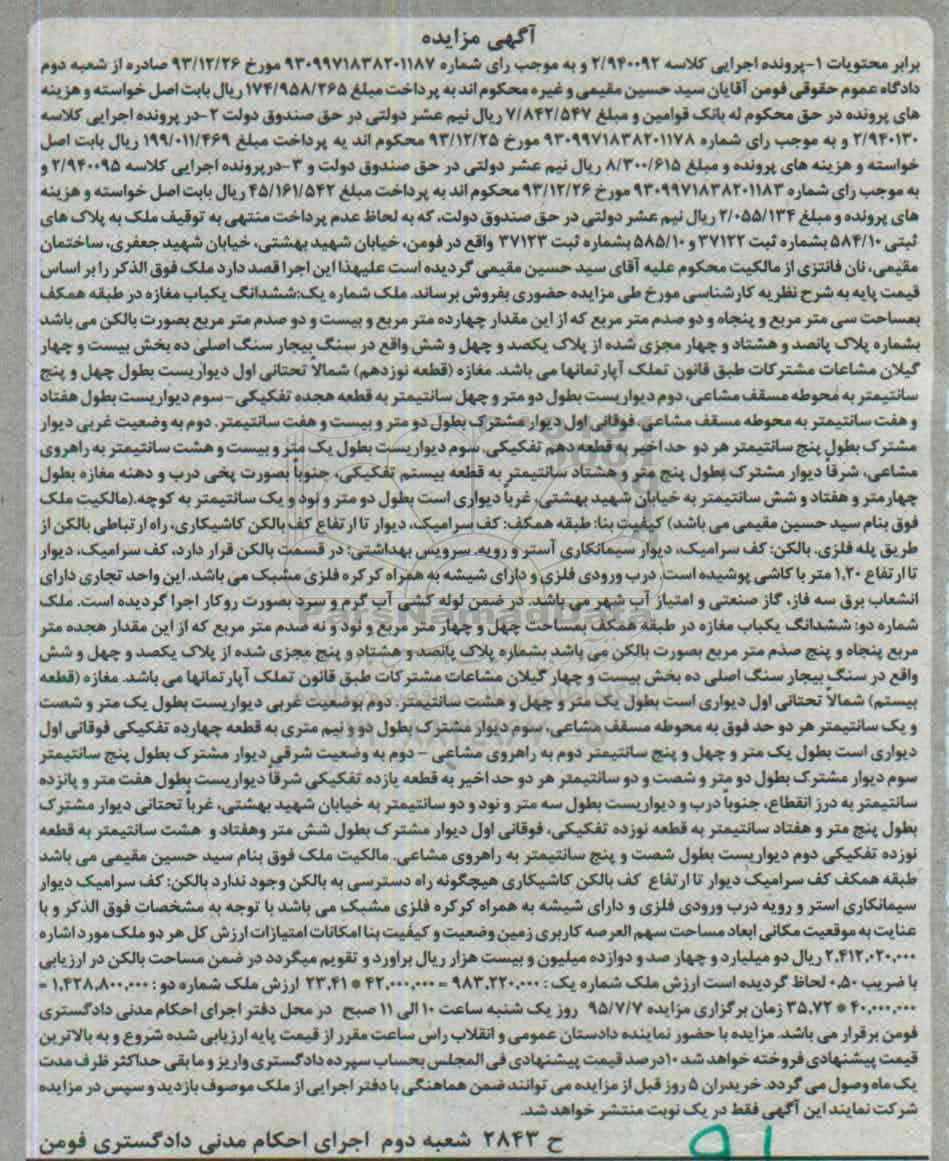 آگهی مزایده
برابر محتویات ۱-پرونده اجرایی کلاسه ۲/۹۴۰۰۹۲ و به موجب رای شماره ۹۳۰۹۹۷۱۸۳۸۲۰۱۱۸۷ مورخ ۹۳/۱۲/۲۶ صادره از شعبه دوم
دادگاه عموم حقوقی فومن آقایان سید حسین مقیمی و غیره محکوم اند به پرداخت مبلغ ۱۷۴/۹۵۸/۲۶۵ ریال بابت اصل خواسته و هزینه
های پرونده در حق محکوم له بانک قوامین و مبلغ ۷/۸۴۲/۵۴۷ ریال نیم عشر دولتی در حق صندوق دولت ۲-در پرونده اجرایی کلاسه
۲/۹۴۰۱۳۰ و به موجب رای شماره ۹۳۰۹۹۷۱۸۳۸۲۰۱۱۷۸ مورخ ۹۳/۱۲/۲۵ محکوم اند یه پرداخت مبلغ ۱۹۹/۰۱۱/۴۶۹ ریال بابت اصل
خواسته و هزینه های پرونده و مبلغ ۸/۳۰۰/۶۱۵ ریال نیم عشر دولتی در حق صندوق دولت و ۳-درپرونده اجرایی کلاسه ۲/۹۴۰۰۹۵ و
به موجب رای شماره ۹۳۰۹۹۷۱۸۳۸۲۰۱۱۸۳ مورخ ۹۳/۱۲/۲۶ محکوم اند به پرداخت مبلغ ۴۵/۱۶۱/۵۴۲ ریال بابت اصل خواسته و هزینه
های پرونده و مبلغ ۲/۰۵۵/۱۳۴ ریال نیم عشر دولتی در حق صندوق دولت، که به لحاظ عدم پرداخت منتهی به توقیف ملک به پلاک های
ثبتی ۵۸۴/۱۰ بشماره ثبت ۳۷۱۲۲ و ۵۸۵/۱۰ بشماره ثبت ۳۷۱۲۳ واقع در فومن، خیابان شهید بهشتی، خیابان شهید جعفری، ساختمان
مقیمی، نان فانتزی از مالکیت محکوم علیه آقای سید حسین مقیمی گردیده است علیهذا این اجرا قصد دارد ملک فوق الذکر را بر اساس
قیمت پایه به شرح نظریه کارشناسی مورخ طی مزایده حضوری بفروش برساند. ملک شماره یک:ششدانگ یکباب مغازه در طبقه همکف
بمساحت سی متر مربع و پنجاه و دو صدم متر مربع که از این مقدار چهارده متر مربع و بیست و دو صدم متر مربع بصورت بالکن می باشد
بشماره پلاک پانصد و هشتاد و چهار مجزی شده از پلاک یکصد و چهل و شش واقع در سنگ بیجار سنگ اصلی ده بخش بیست و چهار
گیلان مشاعات مشترکات طبق قانون تملک آپارتمانها می باشد. مغازه (قطعه نوزدهم) شمالاً تحتانی اول دیواریست بطول چهل و پنج
سانتیمتر به محوطه مسقف مشاعی، دوم دیواریست بطول دو متر و چهل سانتیمتر به قطعه هجده تفکیکی-سوم دیواریست بطول هفتاد
و هفت سانتیمتر به محوطه مسقف مشاعی، فوقانی اول دیوار مشترک بطول دو متر و بیست و هفت سانتیمتر. دوم به وضعیت غربی دیوار
مشترک بطول پنج سانتیمتر هر دو حد اخیر به قطعه دهم تفکیکی. سوم دیواریست بطول یک متر و بیست و هشت سانتیمتر به راهروی
مشاعی، شرقاً دیوار مشترک بطول پنج متر و هشتاد سانتیمتر به قطعه بیستم تفکیکی، جنوباً بصورت پخی درب و دهنه مغازه بطول
چهار متر و هفتاد و شش سانتیمتر به خیابان شهید بهشتی، غرباً دیواری است بطول دو متر و نود و یک سانتیمتر به کوچه.(مالکیت ملک
فوق بنام سید حسین مقیمی می باشد) کیفیت بنا: طبقه همکف: کف سرامیک، دیوار تا ارتفاع کف بالکن کاشیکاری، راه ارتباطی بالکن از
طریق پله فلزی. بالکن: کف سرامیک، دیوار سیمانکاری آستر و رویه. سرویس بهداشتی: در قسمت بالکن قرار دارد، کف سرامیک، دیوار
تا ارتفاع ۱,۲۰ متر با کاشی پوشیده است. درب ورودی فلزی و دارای شیشه به همراه کرکره فلزی مشبک می باشد. این واحد تجاری دارای
انشعاب برق سه فاز، گاز صنعتی و امتیاز آب شهر می باشد. در ضمن لوله کشی آب گرم و سرد بصورت روکار اجرا گردیده است. ملک
شماره دو: ششدانگ یکباب مغازه در طبقه همکف بمساحت چهل و چهار متر مربع و نود و نه صدم متر مربع که از این مقدار هجده متر
مربع پنجاه و پنج صدم متر مربع بصورت بالکن می باشد بشماره پلاک پانصد و هشتاد و پنج مجزی شده از پلاک یکصد و چهل و شش
واقع در سنگ بیجار سنگ اصلی ده بخش بیست و چهار گیلان مشاعات مشترکات طبق قانون تملک آپارتمانها می باشد. مغازه (قطعه
بیستم) شمالاً تحتانی اول دیواری است بطول یک متر و چهل و هشت سانتیمتر. دوم بوضعیت غربی دیواریست بطول یک متر و شصت
و یک سانتیمتر هر دو حد فوق به محوطه مسقف مشاعی، سوم دیوار مشترک بطول دو و نیم متری به قطعه چهارده تفکیکی فوقانی اول
دیواری است بطول یک متر و چهل و پنج سانتیمتر دوم به راهروی مشاعی – دوم به وضعیت شرقی دیوار مشترک بطول پنج سانتیمتر
سوم دیوار مشترک بطول دو متر و شصت و دو سانتیمتر هر دو حد اخیر به قطعه یازده تفکیکی شرقاً دیواریست بطول هفت متر و پانزده
سانتیمتر به درز انقطاع، جنوباً درب و دیواریست بطول سه متر و نود و دو سانتیمتر به خیابان شهید بهشتی، غرباً تحتانی دیوار مشترک
بطول پنج متر و هفتاد سانتیمتر به قطعه نوزده تفکیکی، فوقانی اول دیوار مشترک بطول شش متر وهفتاد و هشت سانتیمتر به قطعه
نوزده تفکیکی دوم دیواریست بطول شصت و پنج سانتیمتر به راهروی مشاعی. مالکیت ملک فوق بنام سید حسین مقیمی می باشد
طبقه همکف کف سرامیک دیوار تا ارتفاع کف بالکن کاشیکاری هیچگونه راه دسترسی به بالکن وجود ندارد بالکن: کف سرامیک دیوار
سیمانکاری استر و رویه درب ورودی فلزی و دارای شیشه به همراه کرکره فلزی مشبک می باشد با توجه به مشخصات فوق الذکر و با
عنایت به موقعیت مکانی ابعاد مساحت سهم العرصه کاربری زمین وضعیت و کیفیت بنا امکانات امتیازات ارزش کل هر دو ملک مورد اشاره
۲,۴۱۲,۰۲۰,۰۰۰ ریال دو میلیارد و چهار صد و دوازده میلیون و بیست هزار ریال براورد و تقویم میگردد در ضمن مساحت بالکن در ارزیابی
با ضریب ۰,۵۰ لحاظ گردیده است ارزش ملک شماره یک : ۹۸۳,۲۲۰,۰۰۰ = ۴۲,۰۰۰,۰۰۰ * ۲۳,۴۱ ارزش ملک شماره دو : ۱,۴۲۸,۸۰۰,۰۰۰ =
۴۰,۰۰۰,۰۰۰ * ۳۵,۷۲ زمان برگزاری مزایده ۹۵/۷/۷ روز یک شنبه ساعت ۱۰ الی ۱۱ صبح در محل دفتر اجرای احکام مدنی دادگستری
فومن برقرار می باشد. مزایده با حضور نماینده دادستان عمومی و انقلاب راس ساعت مقرر از قیمت پایه ارزیابی شده شروع و به بالاترین
قیمت پیشنهادی فروخته خواهد شد ۱۰درصد قیمت پیشنهادی فی المجلس بحساب سپرده دادگستری واریز و مابقی حداکثر ظرف مدت
یک ماه وصول می گردد. خریدران ۵ روز قبل از مزایده می توانند ضمن هماهنگی با دفتر اجرایی از ملک موصوف بازدید و سپس در مزایده
شرکت نمایند این آگهی فقط در یک نوبت منتشر خواهد شد.
ح ۲۸۴۳ شعبه دوم اجرای احکام مدنی دادگستری فومن